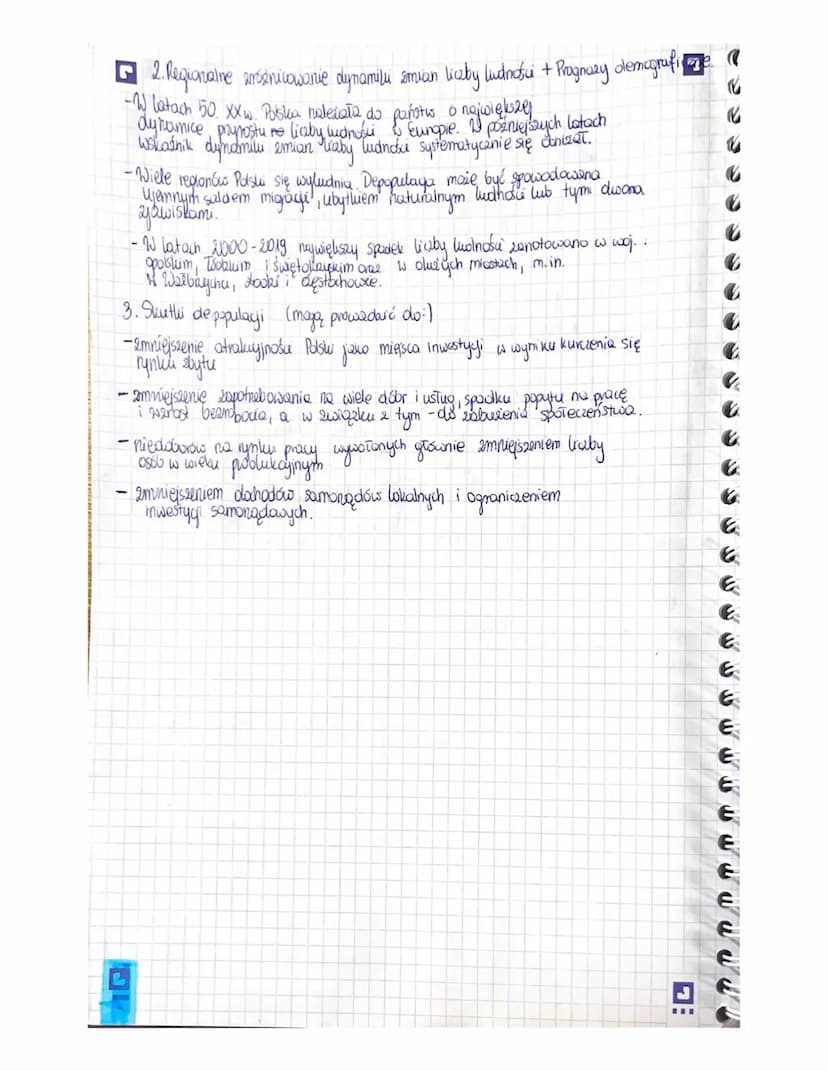 2. Regionalne zróżnicowanie dynamiki zmian liczby ludności + Prognozy demograficzne
- W latach 50. XX w. Polska należała do państw o największej
dynamice przyrostu liczby ludności w Europie. W późniejszych latach
wskaźnik dynamiki zmian liczby ludności systematycznie się obniżał.
- Wiele regionów Polski się wyludnia. Depopulacja może być spowodowana
ujemnym saldem migracji, ubytkiem naturalnym ludności lub tymi dwoma
zjawiskami.
- W latach 2000-2019 największy spadek liczby ludności zanotowano w woj.:
opolskim, łódzkim i świętokrzyskim oraz w dużych miastach, m.in.
w Wałbrzychu, Łodzi i Częstochowie.
3. Skutki depopulacji (mają prowadzić do:)
- zmniejszenie atrakcyjności Polski jako miejsca inwestycji w wyniku kurczenia się
rynku zbytu
- zmniejszenie zapotrzebowania na wiele dóbr i usług, spadku popytu na pracę
i wzrost bezrobocia, a w związku z tym - do zubożenia społeczeństwa.
- niedoborów na rynku pracy wywołanych głównie zmniejszeniem liczby
osób w wieku produkcyjnym
- zmniejszeniem dochodów samorządów lokalnych i ograniczeniem
inwestycji samorządowych.